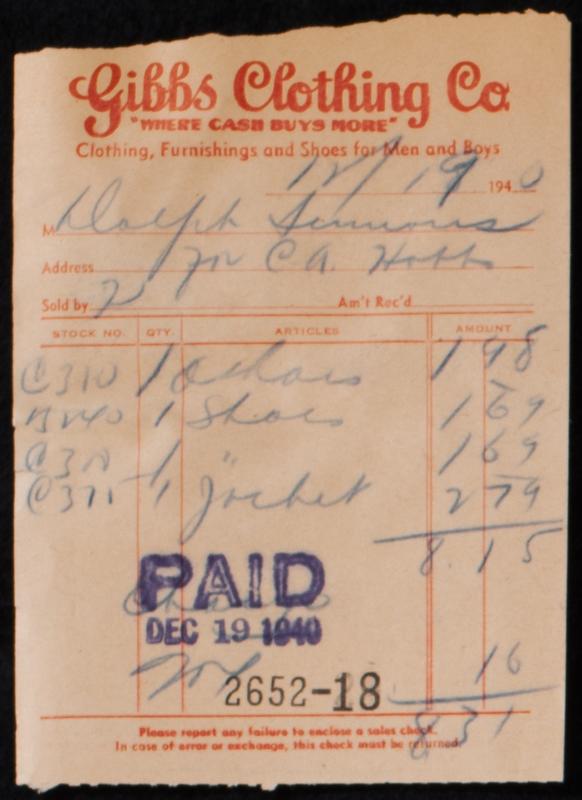 Gibbs Clothing Co
"WHERE CASH BUYS MORE"
Clothing, Furnishings and Shoes for Men and Boys
12/19 1940
M Dolph Simmons
Address for C A. Hobbs
Sold by
Am't Rec'd
STOCK NO. QTY. ARTICLES AMOUNT
C310 1 Shoes 1 98
1 Shoes 1 69
1 " 1 69
1 Jacket 2 79
8.15
PAID
DEC 19 1940
16
2652-18
8 31
Please report any failure to enclose a sales check.
In case of error or exchange, this check must be returned.